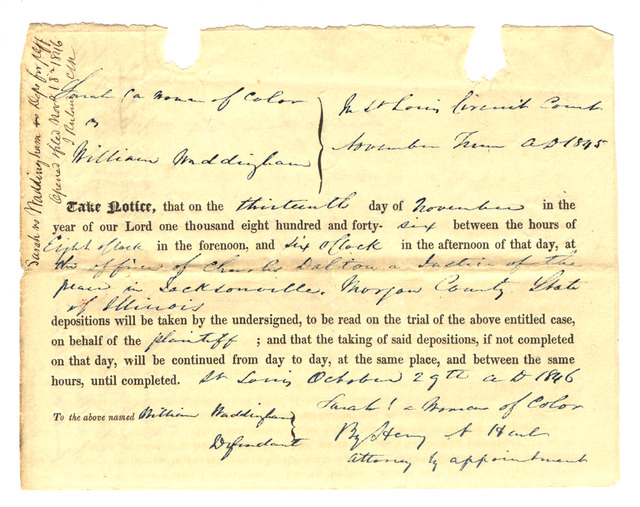 Sarah vs Waddingham Deps for plff
Opened & filed Novr 18th 1846
Sarah (a woman of Color
vs
William Waddingham
In St Louis Circuit Court
November Term A D 1845
Take Notice, that on the thirteenth day of November in the
year of our Lord one thousand eight hundred and forty- six between the hours of
Eight oClock in the forenoon, and six oClock in the afternoon of that day, at
the office of Charles Dalton a Justice of the
peace in Jacksonville, Morgan County State
of Illinois
depositions will be taken by the undersigned, to be read on the trial of the above entitled case,
on behalf of the plaintiff ; and that the taking of said depositions, if not completed
on that day, will be continued from day to day, at the same place, and between the same
hours, until completed. St Louis October 29th A D 1846
To the above named William Waddingham
Defendant
Sarah (a Woman of Color
By Henry A
Attorney by appointment